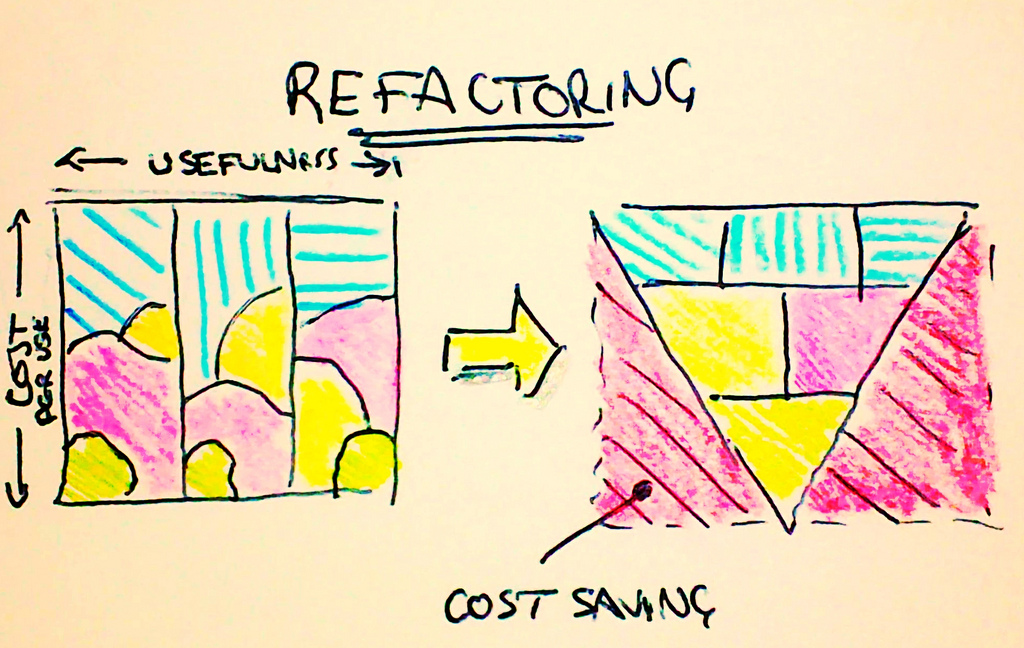 REFACTORING
USEFULNESS
COST
PER USE
COST SAVING